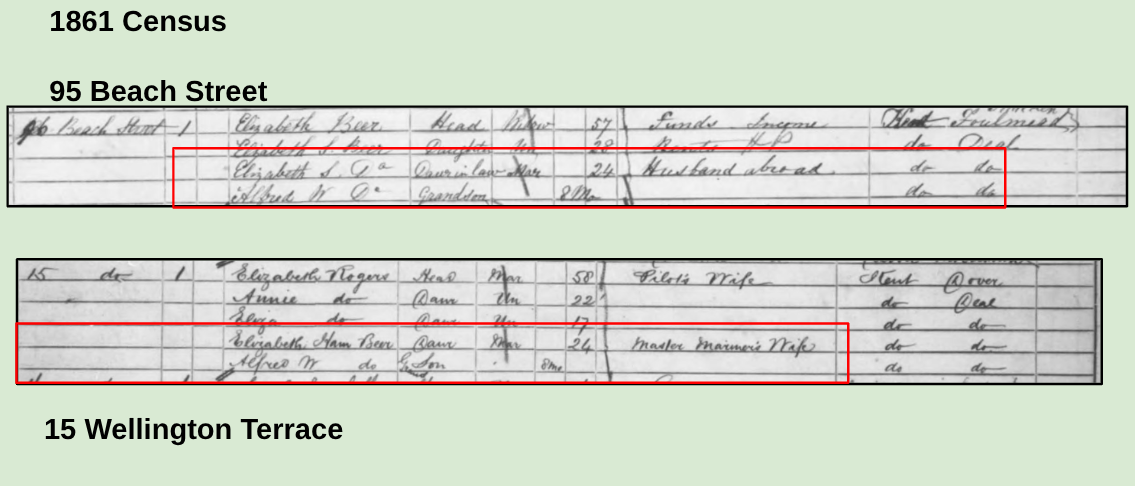 1861 Census
95 Beach Street
Beach Street 1 Elizabeth Beer Head Widow 57 Funds Income Kent
Elizabeth S. Beer Daughter Un 28 do Deal
Elizabeth S. Do Daur in law Mar 24 Husband abroad do do
Alfred W Do Grandson 8 Mo do do
15 do 1 Elizabeth Rogers Head Mar 58 Pilot's Wife Kent Dover
Annie do Daur Un 22 do Deal
Eliza do Daur Un 17 do do
Elizabeth Ham Beer Daur Mar 24 Master Mariner's Wife do do
Alfred W do G. Son 8 Mo do do
15 Wellington Terrace